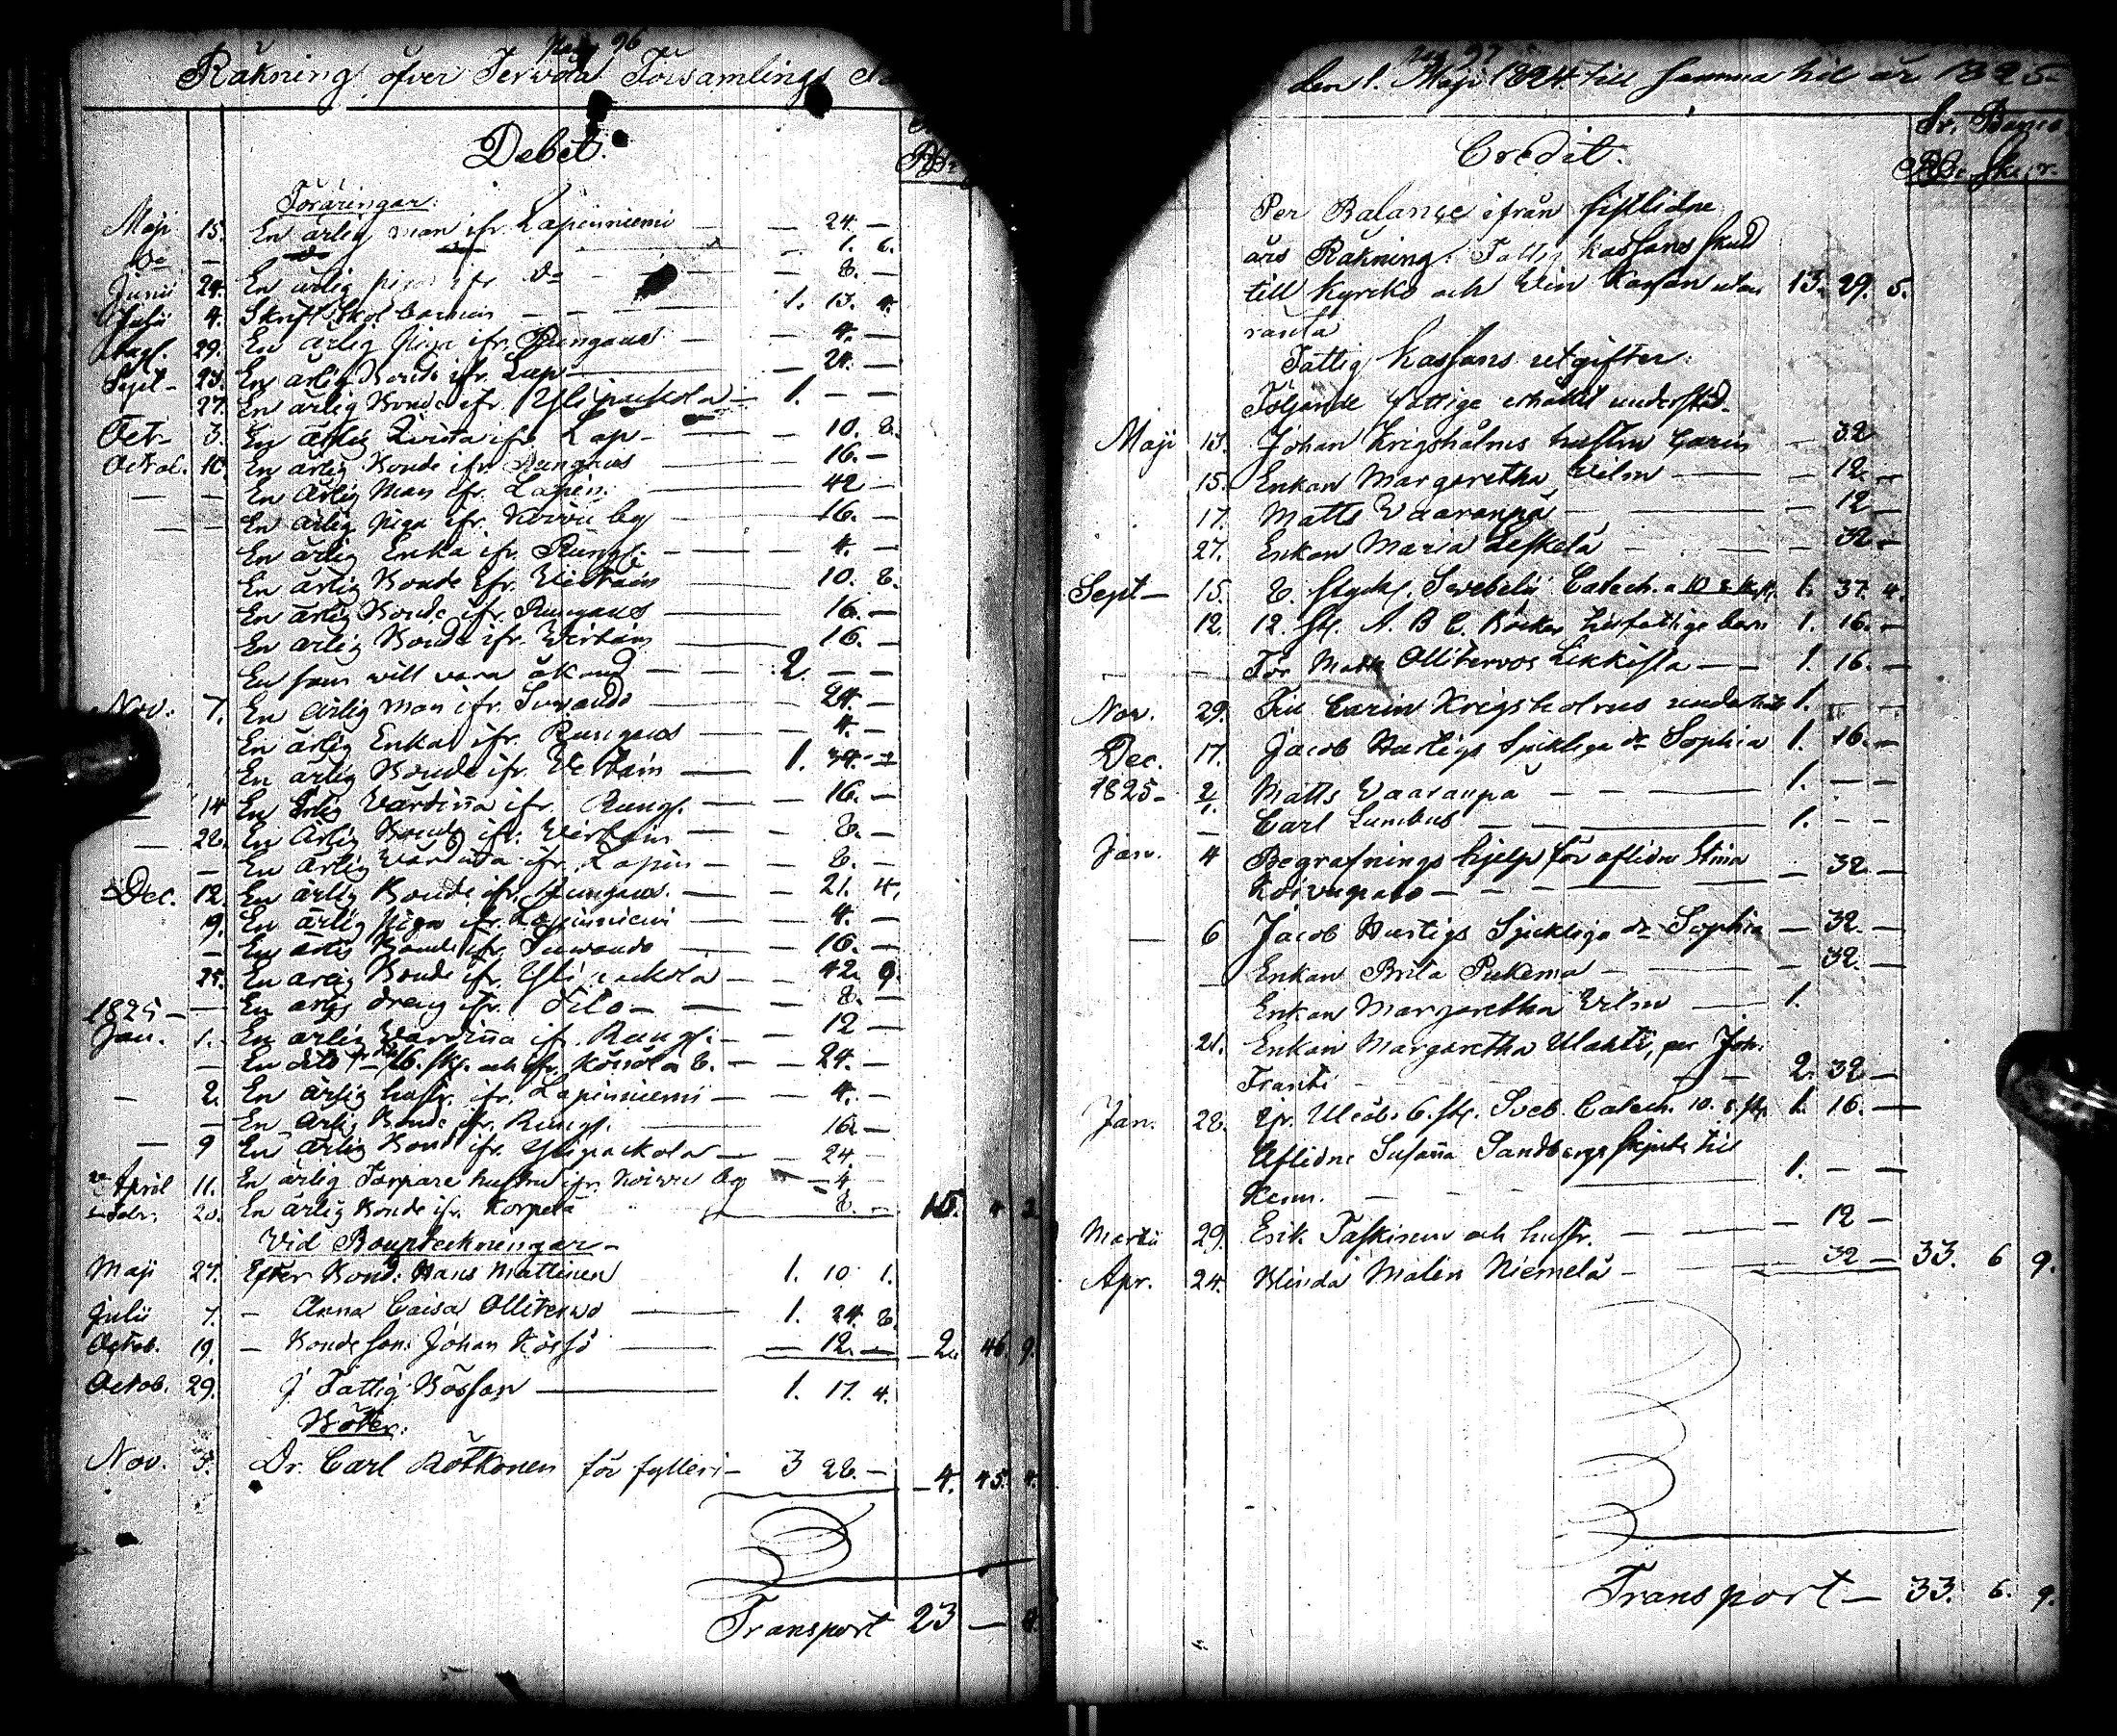 Pag 96
Räkning öfver Tervola Församlings
Debet.
Föräringar:
Maji 15. En ärlig man ifr. Lapinniemi — 24. —
do — 1. 8.
Junii 24. En ärlig piga ifr do — 8. —
Julii 4. Skriftskol barnen — 1. 13. 4.
Augl. 29. En ärlig piga ifr. Rungaus — 4. —
Sept — 23. En ärlig Bonde ifr. Lap — 24. —
27. En ärlig Bonde ifr. Ylipaakola — 1. — —
Oct — 3. En ärlig Qvinna ifr. Lap — 10. 8.
Octob. 10. En ärlig Bonde ifr. Rungaus — 16. —
— — En ärlig Man ifr. Lapin. — 42 —
— — En ärlig piga ifr. Koivu by — 16. —
En ärlig Enka ifr. Rungs. — 4. —
En ärlig Bonde ifr. Wirkain — 10. 8.
En ärlig Bonde ifr. Rungaus — 16. —
En ärlig Bonde ifr. Wirkain — 16. —
En som vill vara okänd — 2. — —
Nov. 7. En ärlig man ifr. Suvando — 24. —
En ärlig Enka ifr. Rungaus — 4. —
En ärlig Bonde ifr. Wirkain — 1. 34. —
— 14 En ärlig Värdinna ifr. Rungs. — 16. —
— 28. En ärlig Bonde ifr. Wirkain — 8. —
— En ärlig Värdinna ifr. Lapin — 8. —
Dec. 12. En ärlig Bonde ifr. Rungaus. — 21. 4.
19. En ärlig piga ifr. Lapinniemi — 4. —
— En ärlig Bonde ifr. Suvando — 16. —
25. En ärlig Bonde ifr. Ylipaakola — 42. 9.
1825 — — En ärlig dreng ifr. — 8. —
Jan. 1. En ärlig Värdinna ifr. Rungs. — 12 —
— En dito 16. sk. och ifr. 8. — 24. —
— 2. En ärlig hustr. ifr. Lapinniemi — 4. —
— En ärlig Bonde ifr. Rungs. — 16. —
— 9 En ärlig Bonde ifr. Ylipaakola — 24. —
April 11. En ärlig Torpare hustru ifr. Koivu by — 4 —
20. En ärlig Bonde ifr. Korpela — 8. — 15. 4 2
Vid Bouptekningar —
Maji 27. Efter Bond. Hans Mattinen 1. 10 1.
Julii 7. — Anna Caisa Ollitervo — 1. 24. 8.
Octob. 19. — Bonde son: Johan Kössö — 12. — 2. 46. 9.
Octob. 29. I Fattig Bössan — 1. 17. 4.
Böter:
Nov. 3. Dr. Carl Rötkonen för fylleri — 3 28. — 4. 45. 4.
Transport 23 —
Pag 97
den 1. Maji 1824. till samma tid år 1825.
Credit.
Sr. Banco
Rdr. sk. r.
Per Balance ifrån sistlidne
års Räkning: Fattig kassans skuld
till Kyrko och Vin Kassan utan 13. 29. 5.
ranta
Fattig kassans utgifter:
Följande fattige erhållit understöd.
Maji 13. Johan Krigsholms hustru Carin — 32
15. Enkan Margaretha Vilm — 12. —
17. Matts Vaaranpä — 12 —
27. Enkan Maria Leskelä — 32 —
Sept — 15. 8. styck. Svebelii Catech. a 10 s. 1. 37. 4.
12. 12. st. A. B. C. Böcker till fattige barn 1. 16. —
— — För Matts Ollitervos Likkista — 1. 16. —
Nov. 29. Till Carin Krigsholms underhåll 1. — —
Dec. 17. Jacob Hurtigs Sjukliga dr Sophia 1. 16. —
1825 — 2/1. Matts Vaaranpä — 1. — —
— Carl Lumbus — 1. — —
Jan. 4 Begrafnings hjelp för aflidne Stina
Koivupalo — 32. —
— 6 Jacob Hurtigs Sjukliga dr Sophia — 32. —
— Enkan Brita Pukema — 32. —
Enkan Margaretha Vilm — 1.
21. Enkan Margaretha Ulakti, per Joh:
Franti — 2. 32 —
Jan. 28. Ifr. Uleåb. 6. st. Sveb. Catech. 10. s. 1. 16. —
Aflidne Susanna Sandbergs skjuts till
Kemi. — 1. — —
Martii 29. Erik Taskinen och hustr. — 12 —
Apr. 24. Blinda Malin Niemelä — 32 — 33. 6 9.
Transport — 33. 6. 9.